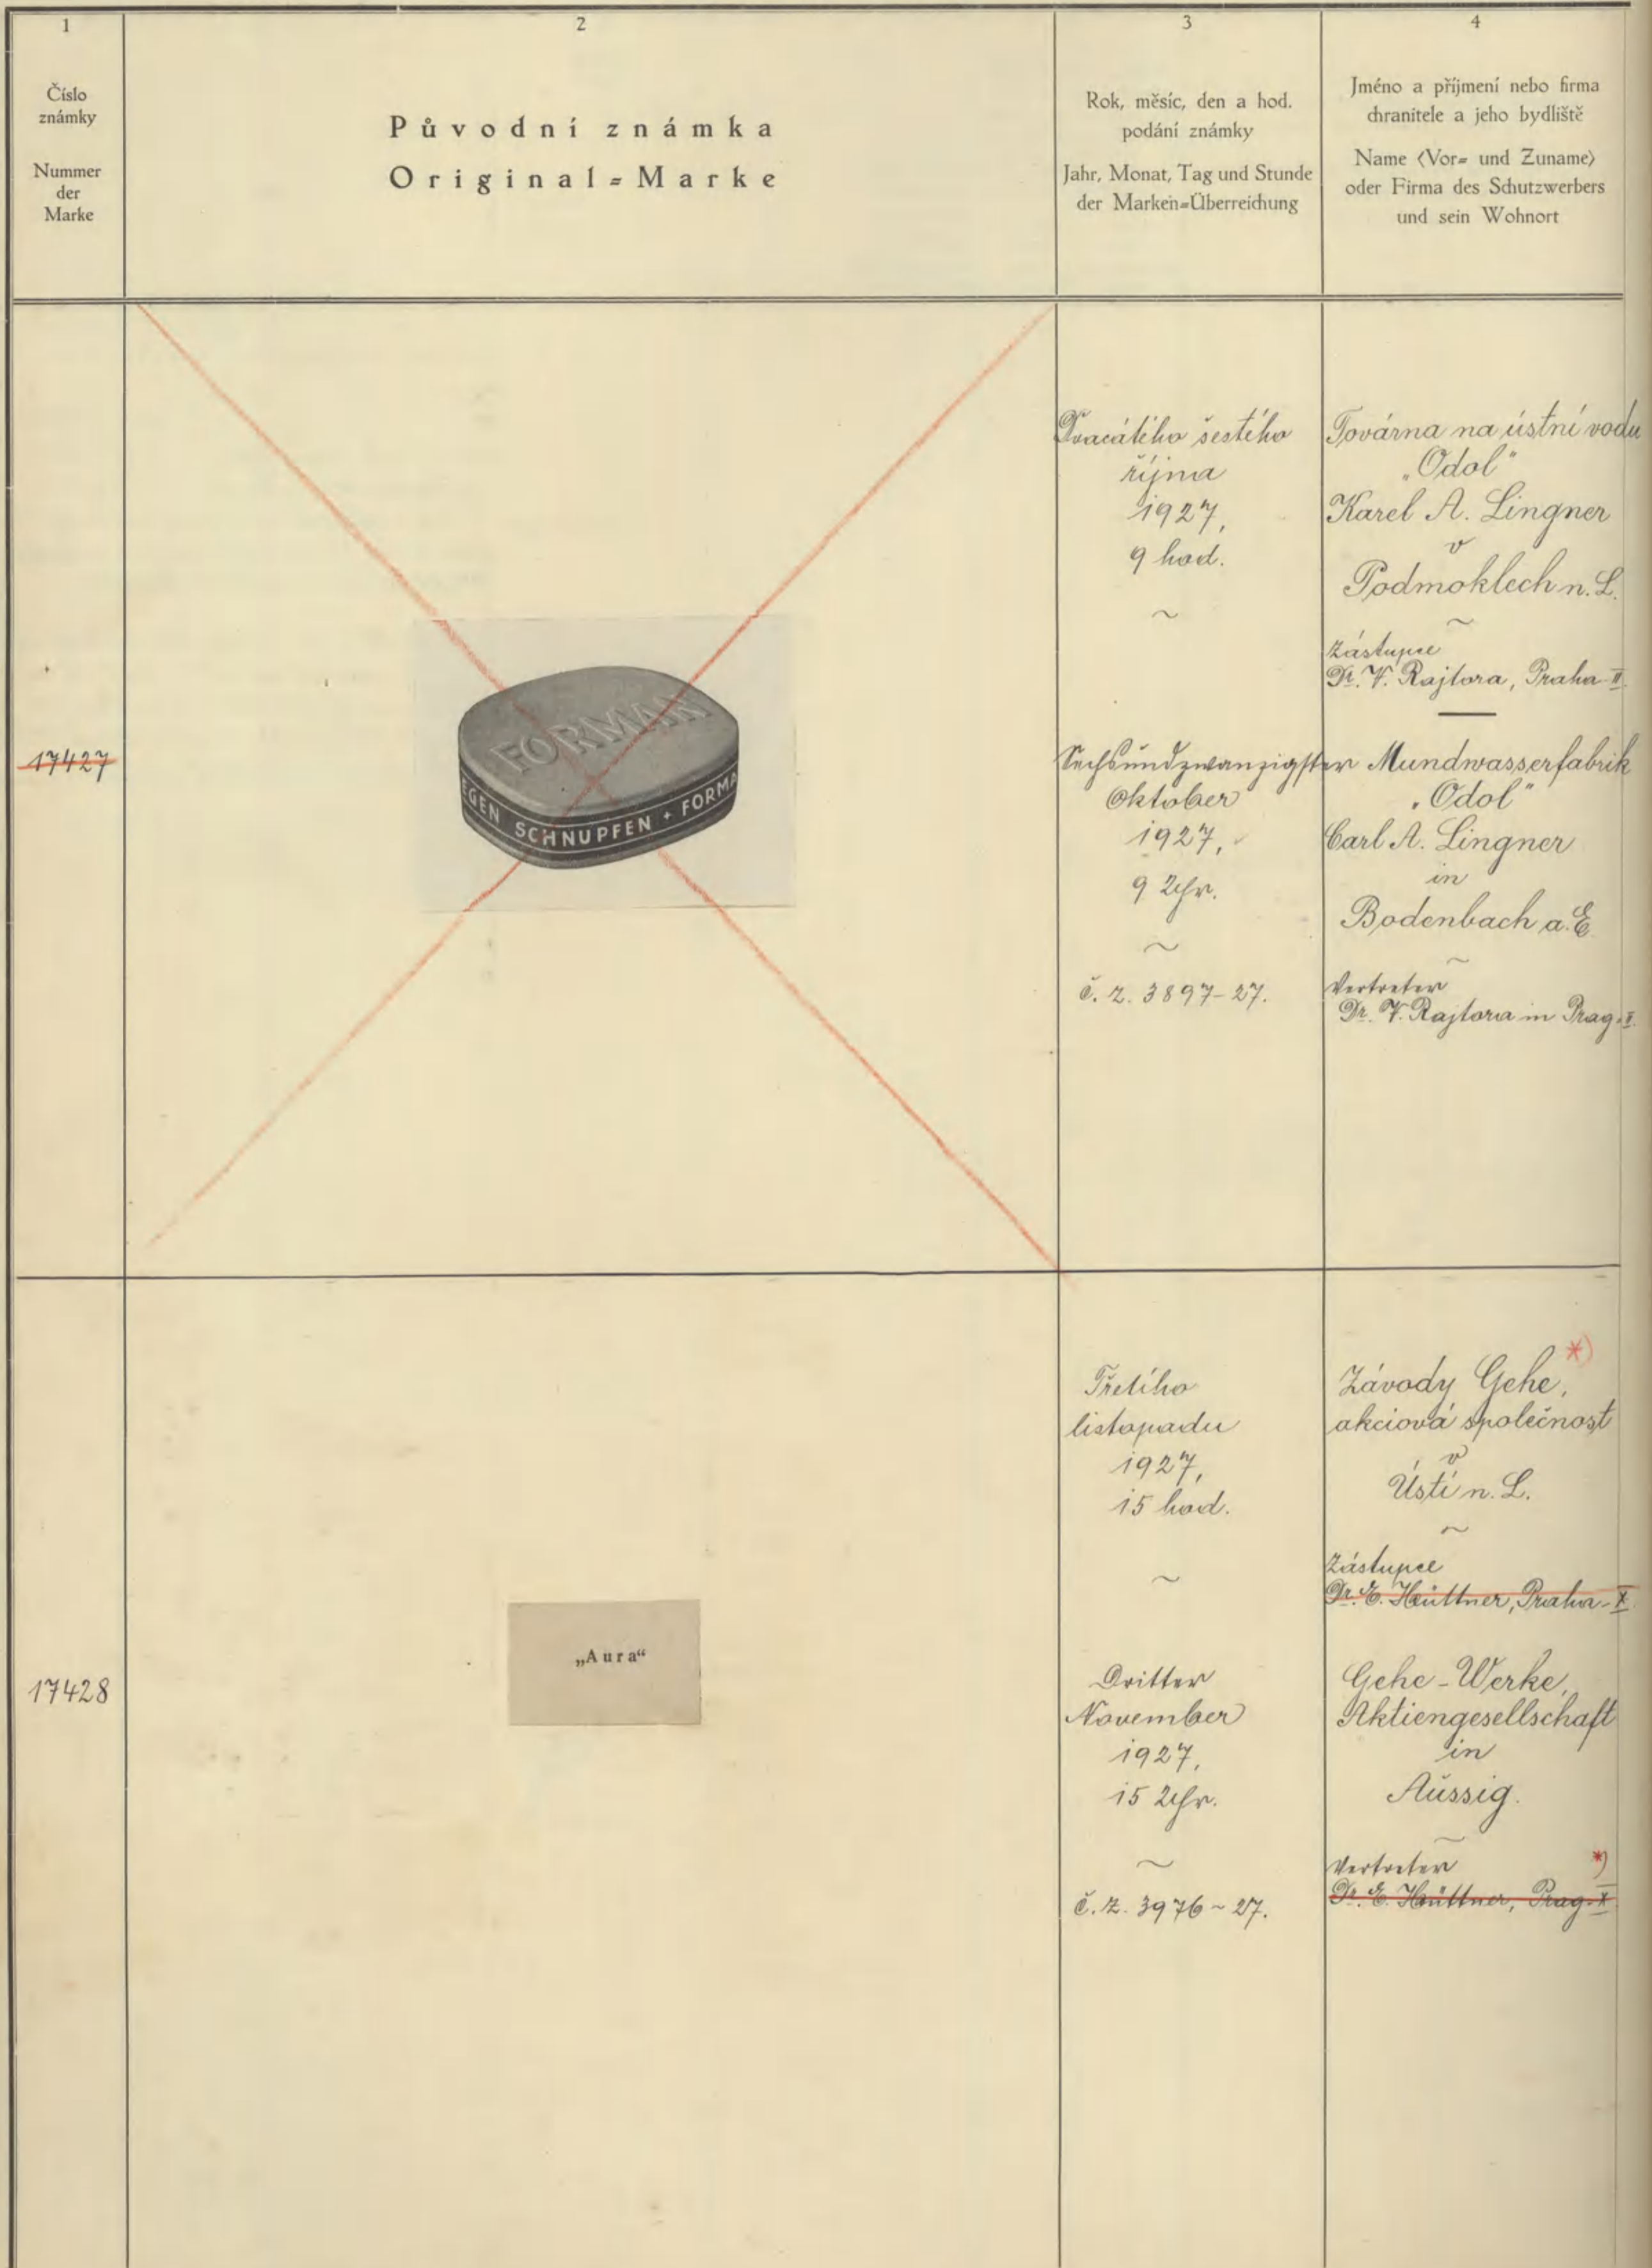 1
Číslo
známky
Nummer
der
Marke
2
Původní známka
Original-Marke
3
Rok, měsíc, den a hod.
podání známky
Jahr, Monat, Tag und Stunde
der Marken-Überreichung
4
Jméno a příjmení nebo firma
chranitele a jeho bydliště
Name (Vor- und Zuname)
oder Firma des Schutzwerbers
und sein Wohnort
17427
FORMAN
EGEN SCHNUPFEN + FORMA
Dvacátého šestého
října
1927,
9 hod.
~
Sechsundzwanzigster
Oktober
1927,
9 Uhr.
~
č. z. 3897-27.
Továrna na ústní vodu
„Odol"
Karel A. Lingner
v
Podmoklech n. L.
~
Zástupce
Dr. V. Rajtora, Praha-II.
Mundwasserfabrik
„Odol"
Carl A. Lingner
in
Bodenbach a. E.
~
Vertreter
Dr. V. Rajtora in Prag-II.
17428
„Aura“
Třetího
listopadu
1927,
15 hod.
~
Dritter
November
1927,
15 Uhr.
~
č. z. 3976-27.
*)
Závody Gehe,
akciová společnost
v
Ústí n. L.
~
Zástupce
Dr. E. Hüttner, Praha-X.
Gehe-Werke,
Aktiengesellschaft
in
Aussig.
~
Vertreter *)
Dr. E. Hüttner, Prag-X